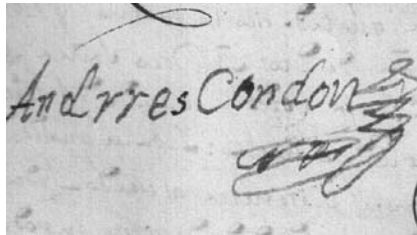 Andrres Condon